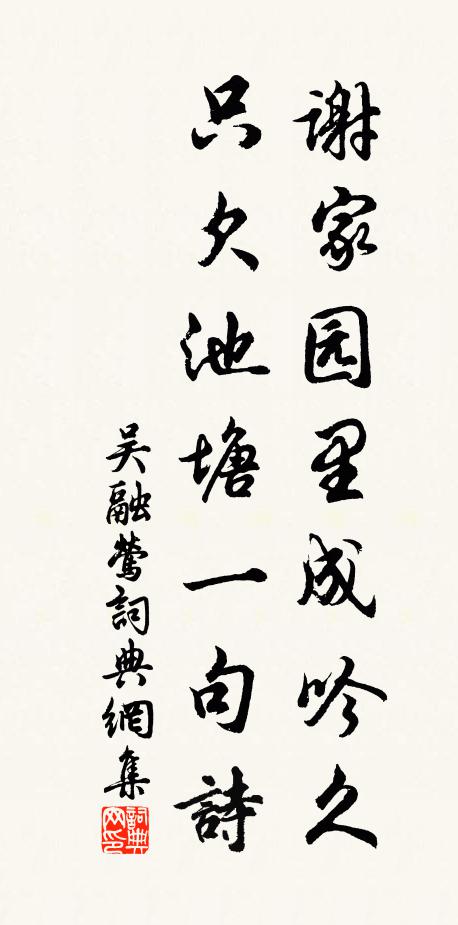 谢家园里成吟久
只欠池塘一句詩
吴融莺詞典網集
詞典
网印